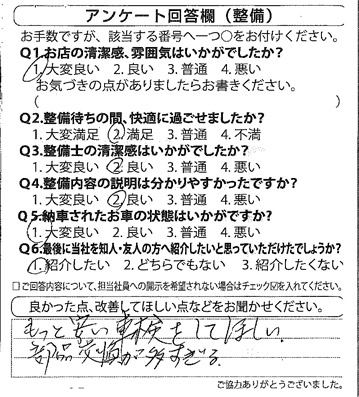 アンケート回答欄（整備）
お手数ですが、該当する番号へ一つ○をお付けください。
Q1.お店の清潔感、雰囲気はいかがでしたか？
1.大変良い 2.良い 3.普通 4.悪い
お気づきの点がありましたらお書きください。
(
Q2.整備待ちの間、快適に過ごせましたか？
1.大変満足 2.満足 3.普通 4.不満
Q3.整備士の清潔感はいかがでしたか？
1.大変良い 2.良い 3.普通 4.悪い
Q4.整備内容の説明は分かりやすかったですか？
1.大変良い 2.良い 3.普通 4.悪い
Q5.納車されたお車の状態はいかがですか？
1.大変良い 2.良い 3.普通 4.悪い
Q6.最後に当社を知人・友人の方へ紹介したいと思っていただけたでしょうか？
1.紹介したい 2.どちらでもない 3.紹介したくない
□ご回答内容について、担当社員への開示を希望されない場合はチェック☑を入れてください。
良かった点、改善してほしい点などをお聞かせください。
もっと安い車検をしてほしい。
部品交換が多すぎる。
ご協力ありがとうございました。